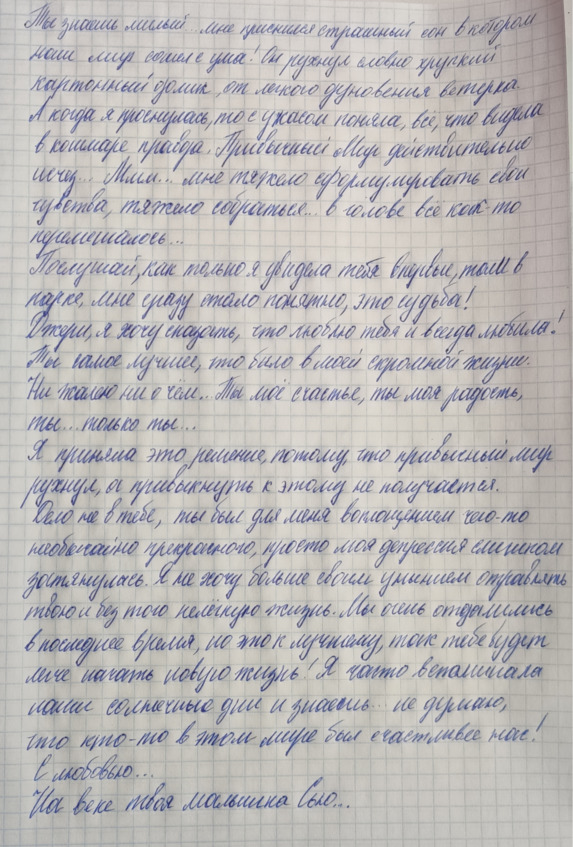 Ты знаешь милый... мне приснился страшный сон в котором
наш мир сошел с ума! Он рухнул словно хрупкий
картонный домик, от легкого дуновения ветерка.
А когда я проснулась, то с ужасом поняла, всё, что видела
в кошмаре правда. Привычный мир действительно
исчез... Ммм... мне тяжело сформулировать свои
чувства, тяжело собраться.. в голове всё как-то
перемешалось...
Послушай, как только я увидела тебя впервые, там в
парке, мне сразу стало понятно, это судьба!
Джери, я хочу сказать, что люблю тебя и всегда любила!
Ты самое лучшее, что было в моей скромной жизни.
Ни жалею ни о чём.. Ты моё счастье, ты моя радость,
ты... только ты...
Я приняла это решение, потому, что привычный мир
рухнул, а привыкнуть к этому не получается.
Дело не в тебе, ты был для меня воплощением чего-то
необычайно прекрасного, просто моя депрессия слишком
затянулась. Я не хочу больше своим унынием отравлять
твою и без того нелёгкую жизнь. Мы очень отдалились
в последнее время, но это к лучшему, так тебе будет
легче начать новую жизнь! Я часто вспоминала
наши солнечные дни и знаешь... не думаю,
что кто-то в этом мире был счастливее нас!
С любовью...
На веке твоя малышка Сью...